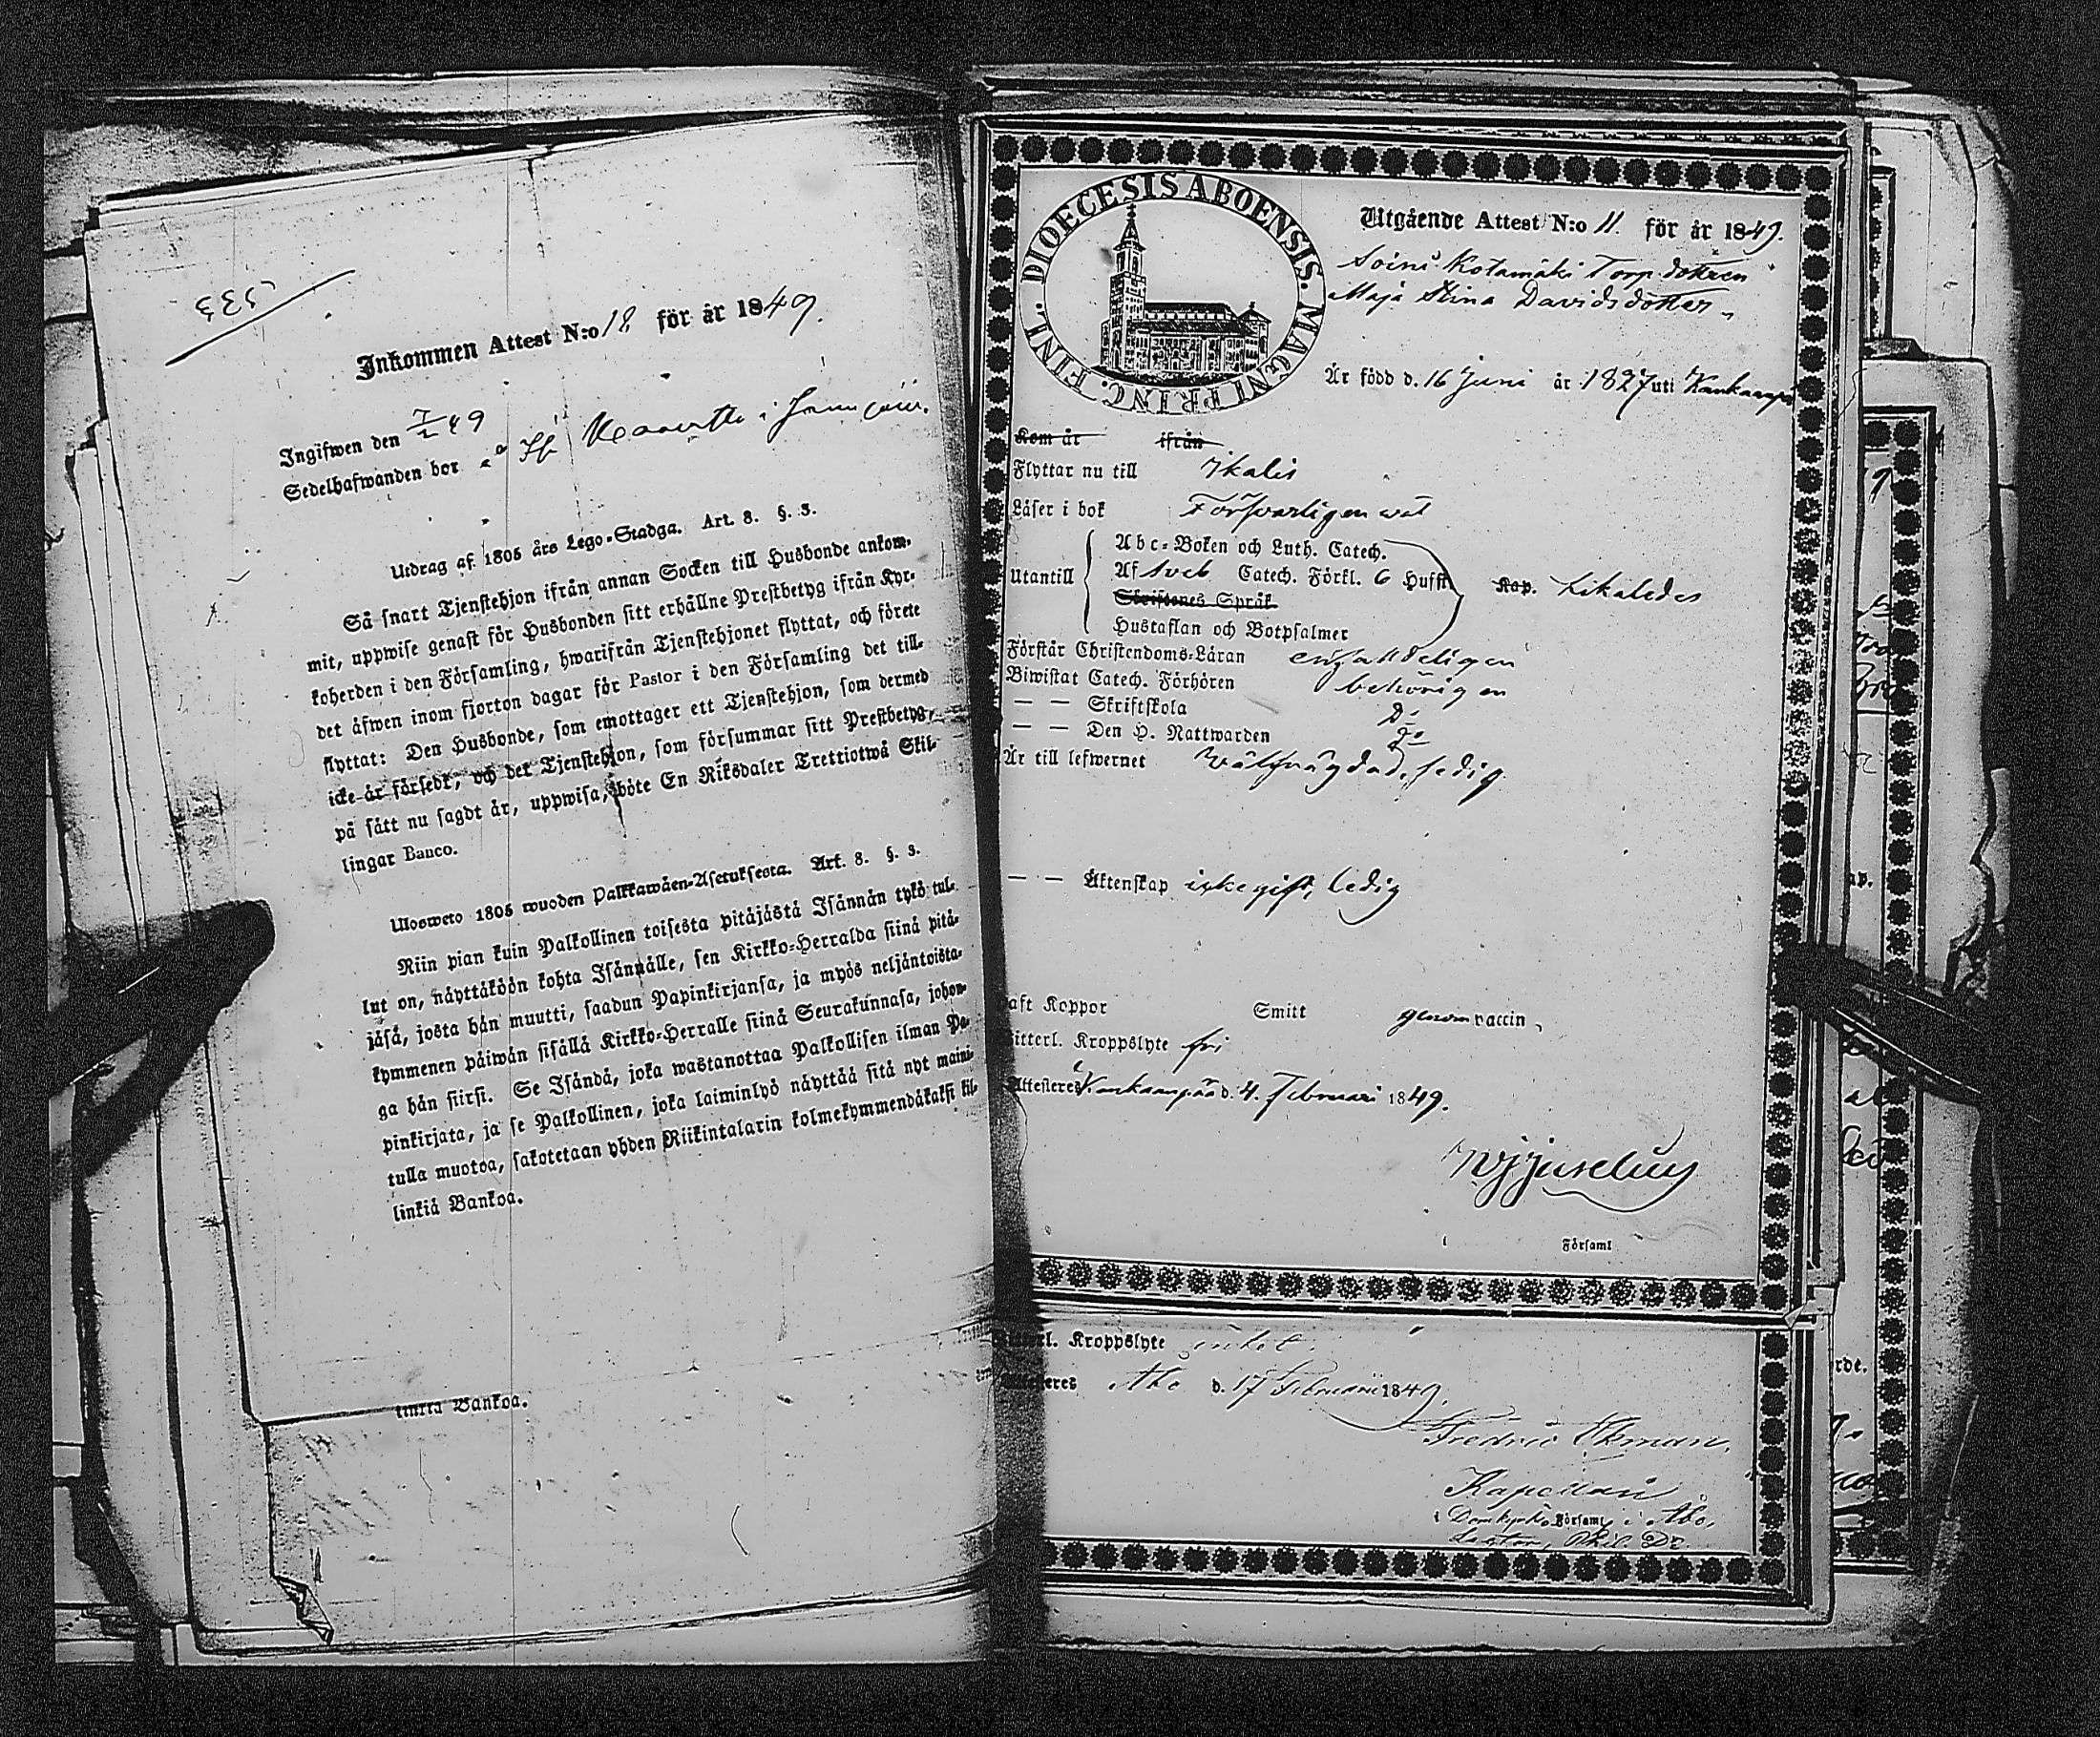 533
Inkommen Attest N:o 12 för år 1849.
Ingifwen den 7/2 49
Sedelhafwanden bor
Utdrag af 1805 års Lego-Stadga. Art. 8. §. 3.
Så snart Tjenstehjon ifrån annan Socken till Husbonde ankom-
mit, uppwise genast för Husbonden sitt erhållne Prestbetyg ifrån Kyr-
koherden i den Församling, hwarifrån Tjenstehjonet flyttat, och förete
det äfwen inom fjorton dagar för Pastor i den Församling det till-
flyttat: Den Husbonde, som emottager ett Tjenstehjon, som dermed
icke är försedt, och det Tjenstehjon, som försummar sitt Prestbetyg,
på sätt nu sagdt är, uppwisa, böte En Riksdaler Trettiotwå Skil-
lingar Banco.
Ulosweto 1805 wuoden Palkkawäen-Asetuksesta. Art. 8. §. 3.
Niin pian kuin Palkollinen toisesta pitäjästä Isännän tykö tul-
lut on, näyttäköön kohta Isännälle, sen Kirkko-Herralda siinä pitä-
jäsä, josta hän muutti, saadun Papinkirjansa, ja myös neljäntoista-
kymmenen päiwän sisällä Kirkko-Herralle siinä Seurakunnasa, johon-
ga hän siirsi. Se Isändä, joka wastanottaa Palkollisen ilman Pa-
pinkirjata, ja se Palkollinen, joka laiminlyö näyttää sitä nyt maini-
tulla muotoa, sakotetaan yhden Riikintalarin kolmekymmendäkaksi kil-
linkiä Bankoa.
linkiä Bankoa.
DIOECESIS ABOENSIS. MAGNI PRINC. FINL.
Utgående Attest N:o 11. för år 1849.
Soini Kotamäki Torp dottren
Maja Stina Davidsdotter
Är född d. 16 Juni år 1827 uti Kankaanpä
Kom år ifrån
Flyttar nu till Ikalis
Läser i bok Försvarligen wäl
Abc-Boken och Luth. Catech.
Utantill Af Sveb Catech. Förkl. 6 Hufst. Kap. Likaledes
Skriftenes Språk
Hustaflan och Botpsalmer
Förstår Christendoms-Läran enfaldeligen
Biwistat Catech. Förhören behörigen
— — Skriftskola Do
— — Den H. Nattwarden Do
Är till lefwernet wälfrägdad, ledig
— — Äktenskap icke gift, ledig
aft Koppor Smitt genom vaccin
itterl. Kroppslyte fri
Attesteres Kankaanpää d. 4. Februari 1849.
Församl
rl. Kroppslyte intet.
eres Åbo d. 17 Februarii 1849.
Fredric Ekman,
Kapellan
i Domkyrko Församl i Åbo,
Lector, Phil. Dr